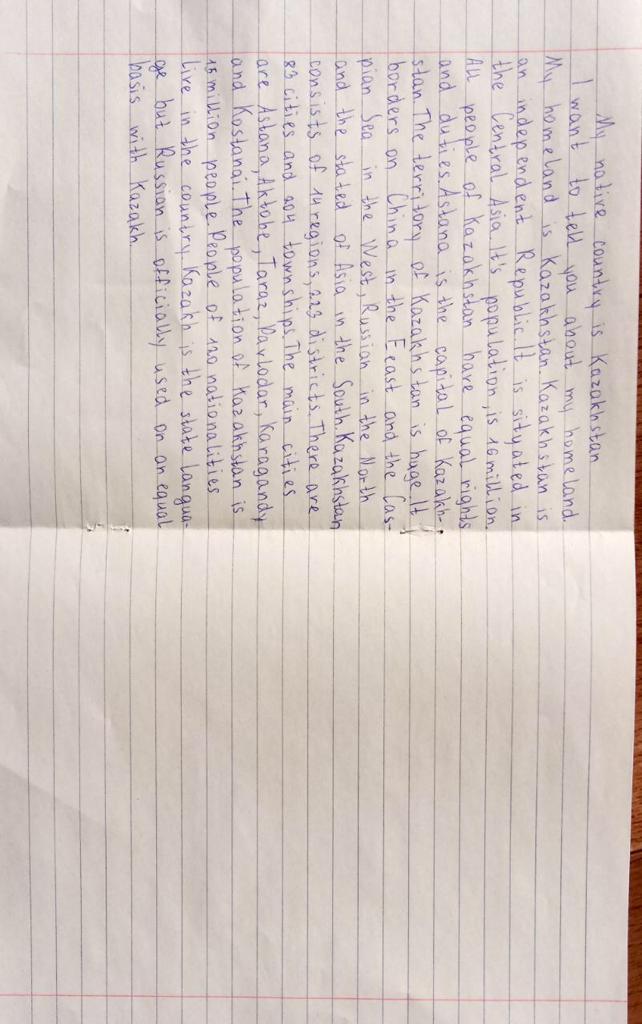 My native country is Kazakhstan
I want to tell you about my homeland.
My homeland is Kazakhstan. Kazakhstan is
an independent Republic. It is situated in
the Central Asia. It's population, is 16 million.
All people of Kazakhstan have equal rights
and duties. Astana is the capital of Kazakh-
stan. The territory of Kazakhstan is huge. It
borders on China in the Eeast and the Cas-
pian Sea in the West, Russian in the North
and the stated of Asia in the South. Kazakhstan
consists of 14 regions, 223 districts. There are
83 cities and 204 townships. The main cities
are Astana, Aktobe, Taraz, Pavlodar, Karagandy
and Kostanai. The population of Kazakhstan is
15 million people People of 120 nationalities
live in the country. Kazakh is the state langua-
ge but Russian is officially used on an equal
basis with Kazakh